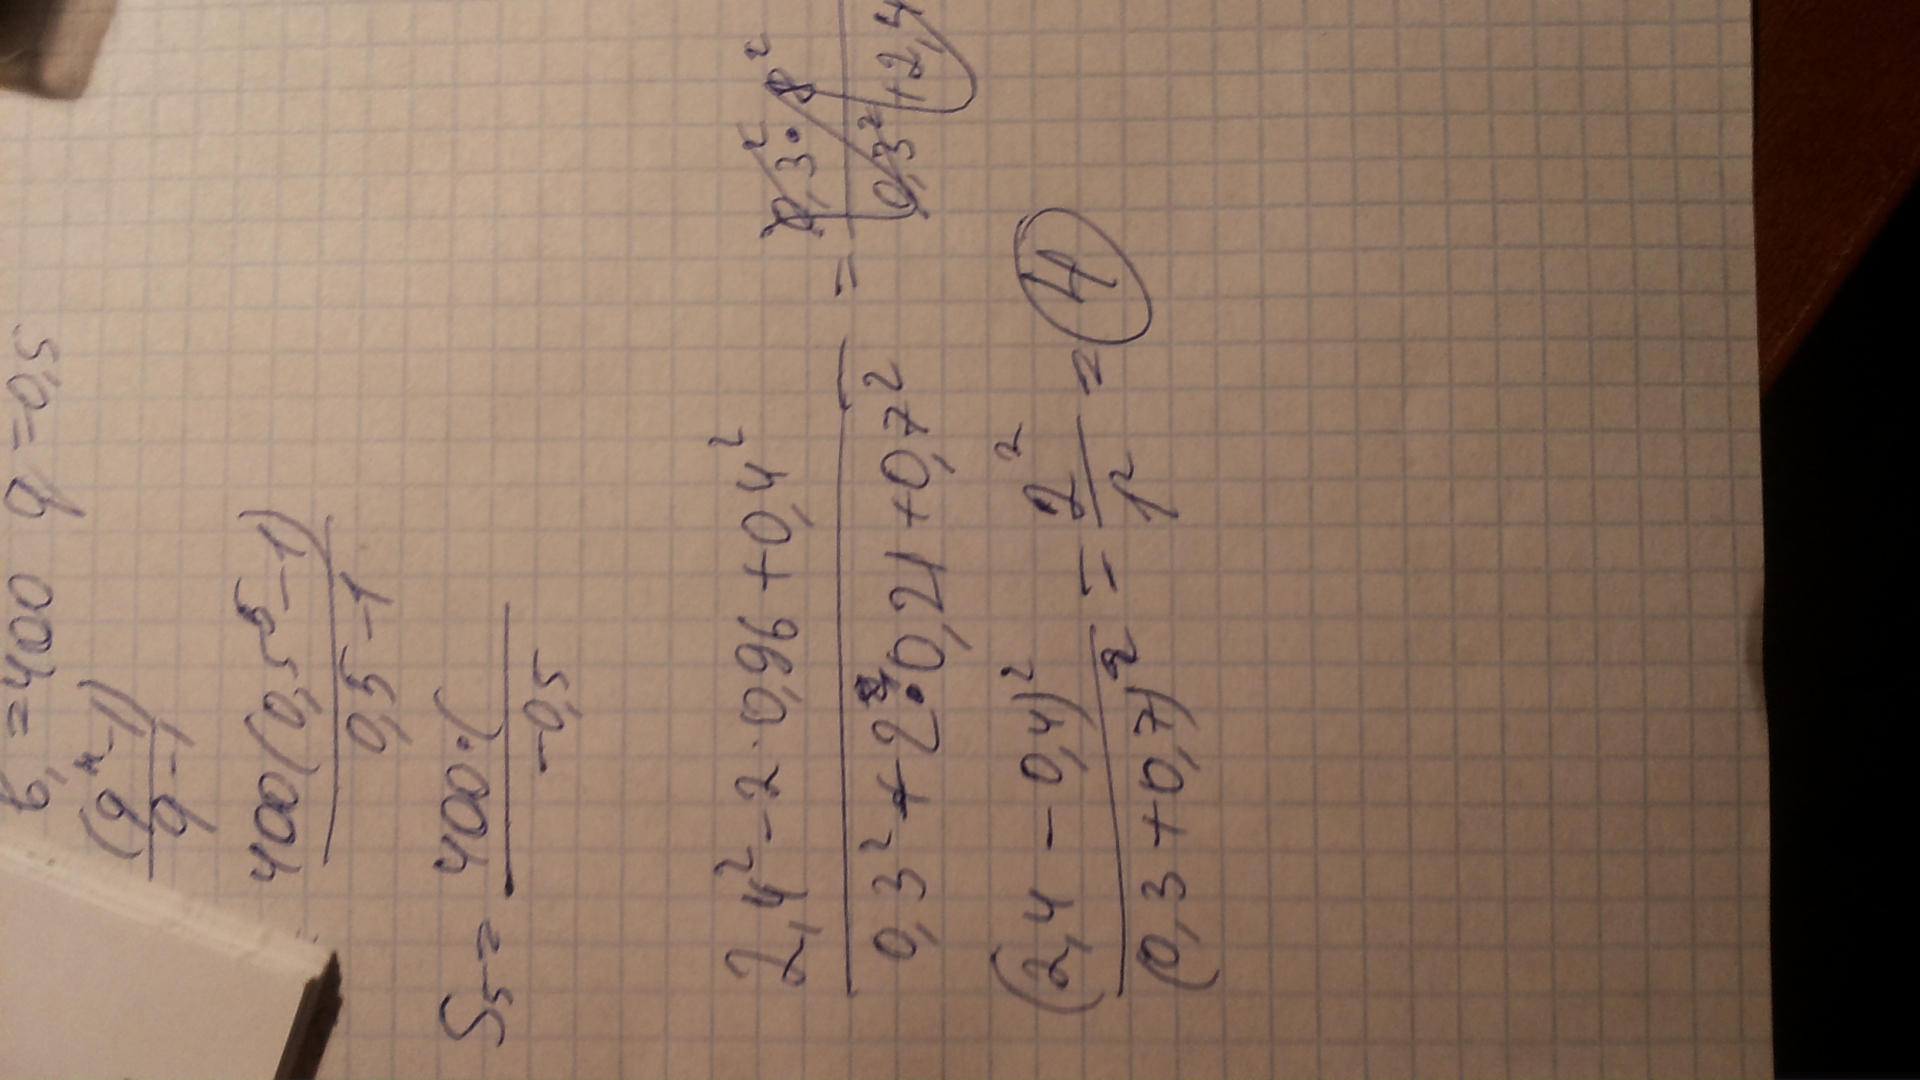 b₁ = 400 q = 0,5
(qⁿ - 1)
q - 1
400(0,5⁵ - 1)
0,5 - 1
S₅ = 400·(
-0,5
2,4² - 2·0,96 + 0,4²
0,3² + 2·0,21 + 0,7²
=
0,3²·8²
0,3² + 2,4
(2,4 - 0,4)²
(0,3 + 0,7)²
= 2²
1²
= 4